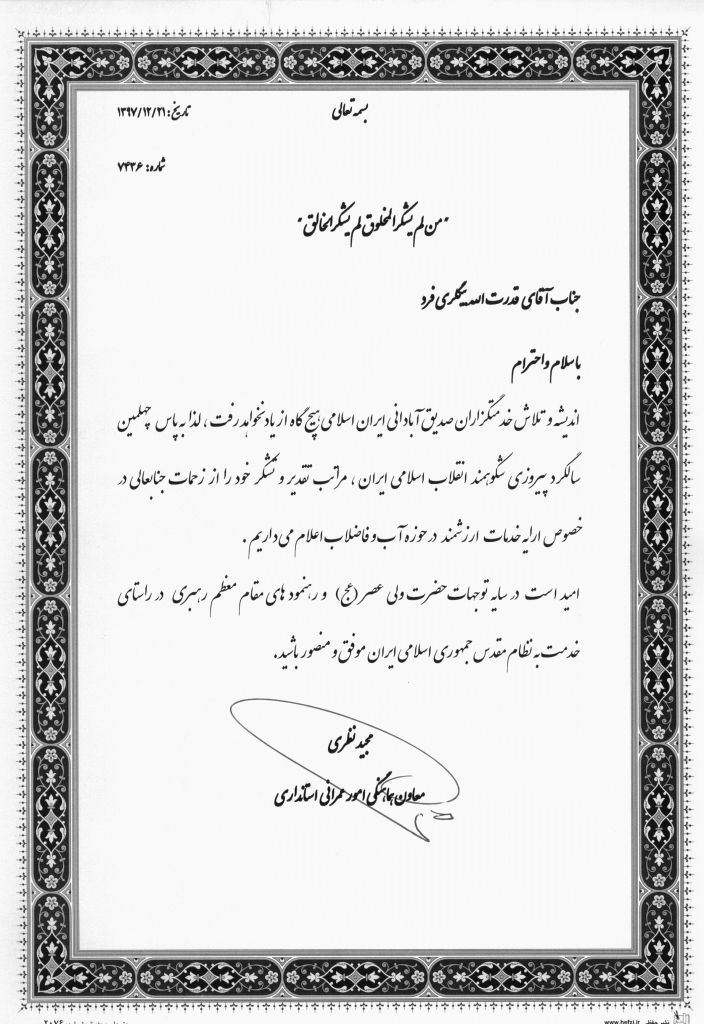 بسمه تعالی
تاریخ: ۱۳۹۷/۱۲/۲۱
شماره: ۷۴۳۶
"من لم یشکر المخلوق لم یشکر الخالق"
جناب آقای قدرت الله بیگلری فرد
باسلام و احترام
اندیشه و تلاش خدمتگزاران صدیق آبادانی ایران اسلامی هیچ گاه از یاد نخواهد رفت، لذا به پاس چهلمین
سالگرد پیروزی شکوهمند انقلاب اسلامی ایران، مراتب تقدیر و تشکر خود را از زحمات جنابعالی در
خصوص ارایه خدمات ارزشمند در حوزه آب و فاضلاب اعلام می داریم.
امید است در سایه توجهات حضرت ولی عصر (عج) و رهنمود های مقام معظم رهبری در راستای
خدمت به نظام مقدس جمهوری اسلامی ایران موفق و منصور باشید.
مجید نظری
معاون هماهنگی امور عمرانی استانداری
www.hefzi.ir
۲۰۷۶